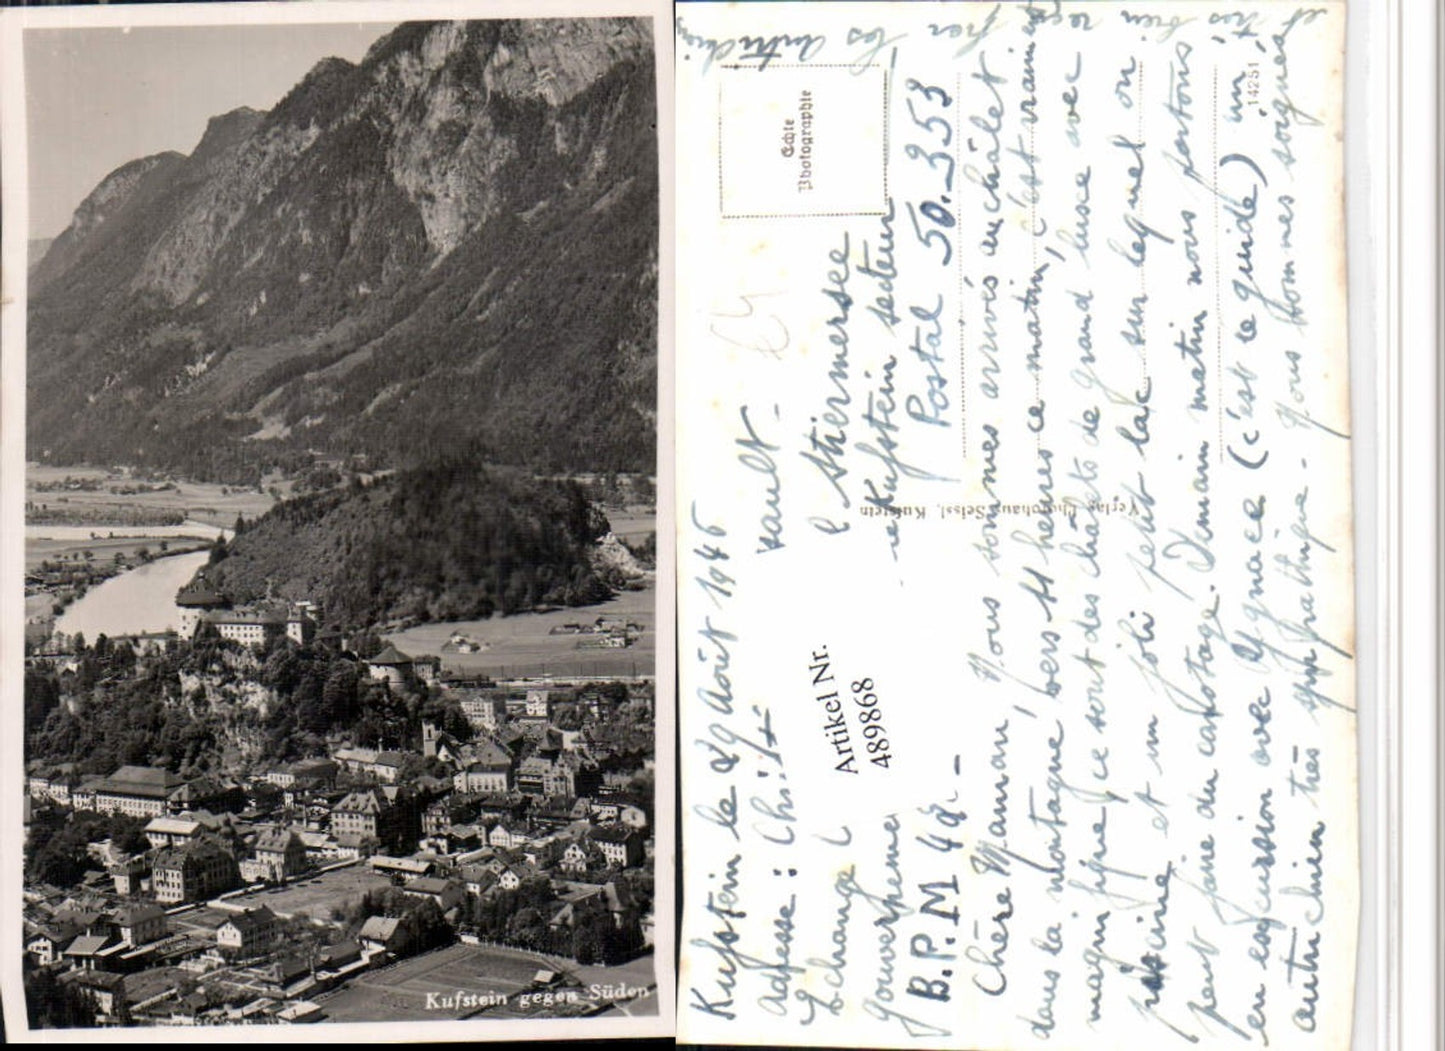 Kufstein gegen Süden
Echte
Photographie
14251
Verlag Photohaus Seissl, Kufstein
Artikel Nr.
489868
Kufstein le 29 Août 1946
Adresse :
Echange
Kufstein secteur
B.P.M 42. – Postal 50.353
Chère Maman, Nous sommes arrivés au châlet
dans la montagne vers 11 heures ce matin, c'est vraiment
magnifique ce sont des châlets de grand luxe avec
piscine et un joli petit lac sur lequel on
peut faire du canotage. Demain matin nous partons
en excursion avec Ignace (c'est le guide) un
autrichien très sympathique. Nous sommes soignés
et très bien reçus par les Autrichiens